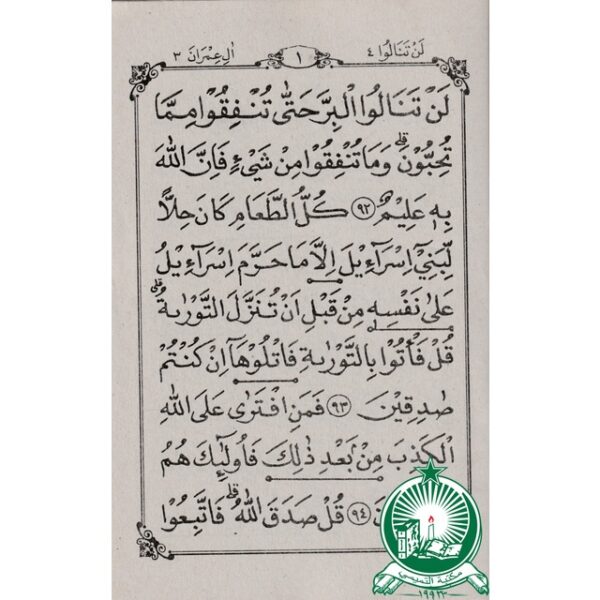 لَنْ تَنَالُوا ٤
١
اٰلِ عِمْرَانَ ٣
لَنْ تَنَالُوا الْبِرَّ حَتّٰى تُنْفِقُوْا مِمَّا
تُحِبُّوْنَ ۗ وَمَا تُنْفِقُوْا مِنْ شَيْءٍ فَاِنَّ اللّٰهَ
بِهٖ عَلِيْمٌ ٩٢ كُلُّ الطَّعَامِ كَانَ حِلًّا
لِّبَنِيْٓ اِسْرَآءِيْلَ اِلَّا مَا حَرَّمَ اِسْرَآءِيْلُ
عَلٰى نَفْسِهٖ مِنْ قَبْلِ اَنْ تُنَزَّلَ التَّوْرٰىةُ ۗ
قُلْ فَأْتُوْا بِالتَّوْرٰىةِ فَاتْلُوْهَآ اِنْ كُنْتُمْ
صٰدِقِيْنَ ٩٣ فَمَنِ افْتَرٰى عَلَى اللّٰهِ
الْكَذِبَ مِنْۢ بَعْدِ ذٰلِكَ فَاُولٰٓئِكَ هُمُ
٩٤ قُلْ صَدَقَ اللّٰهُ ۗ فَاتَّبِعُوْا